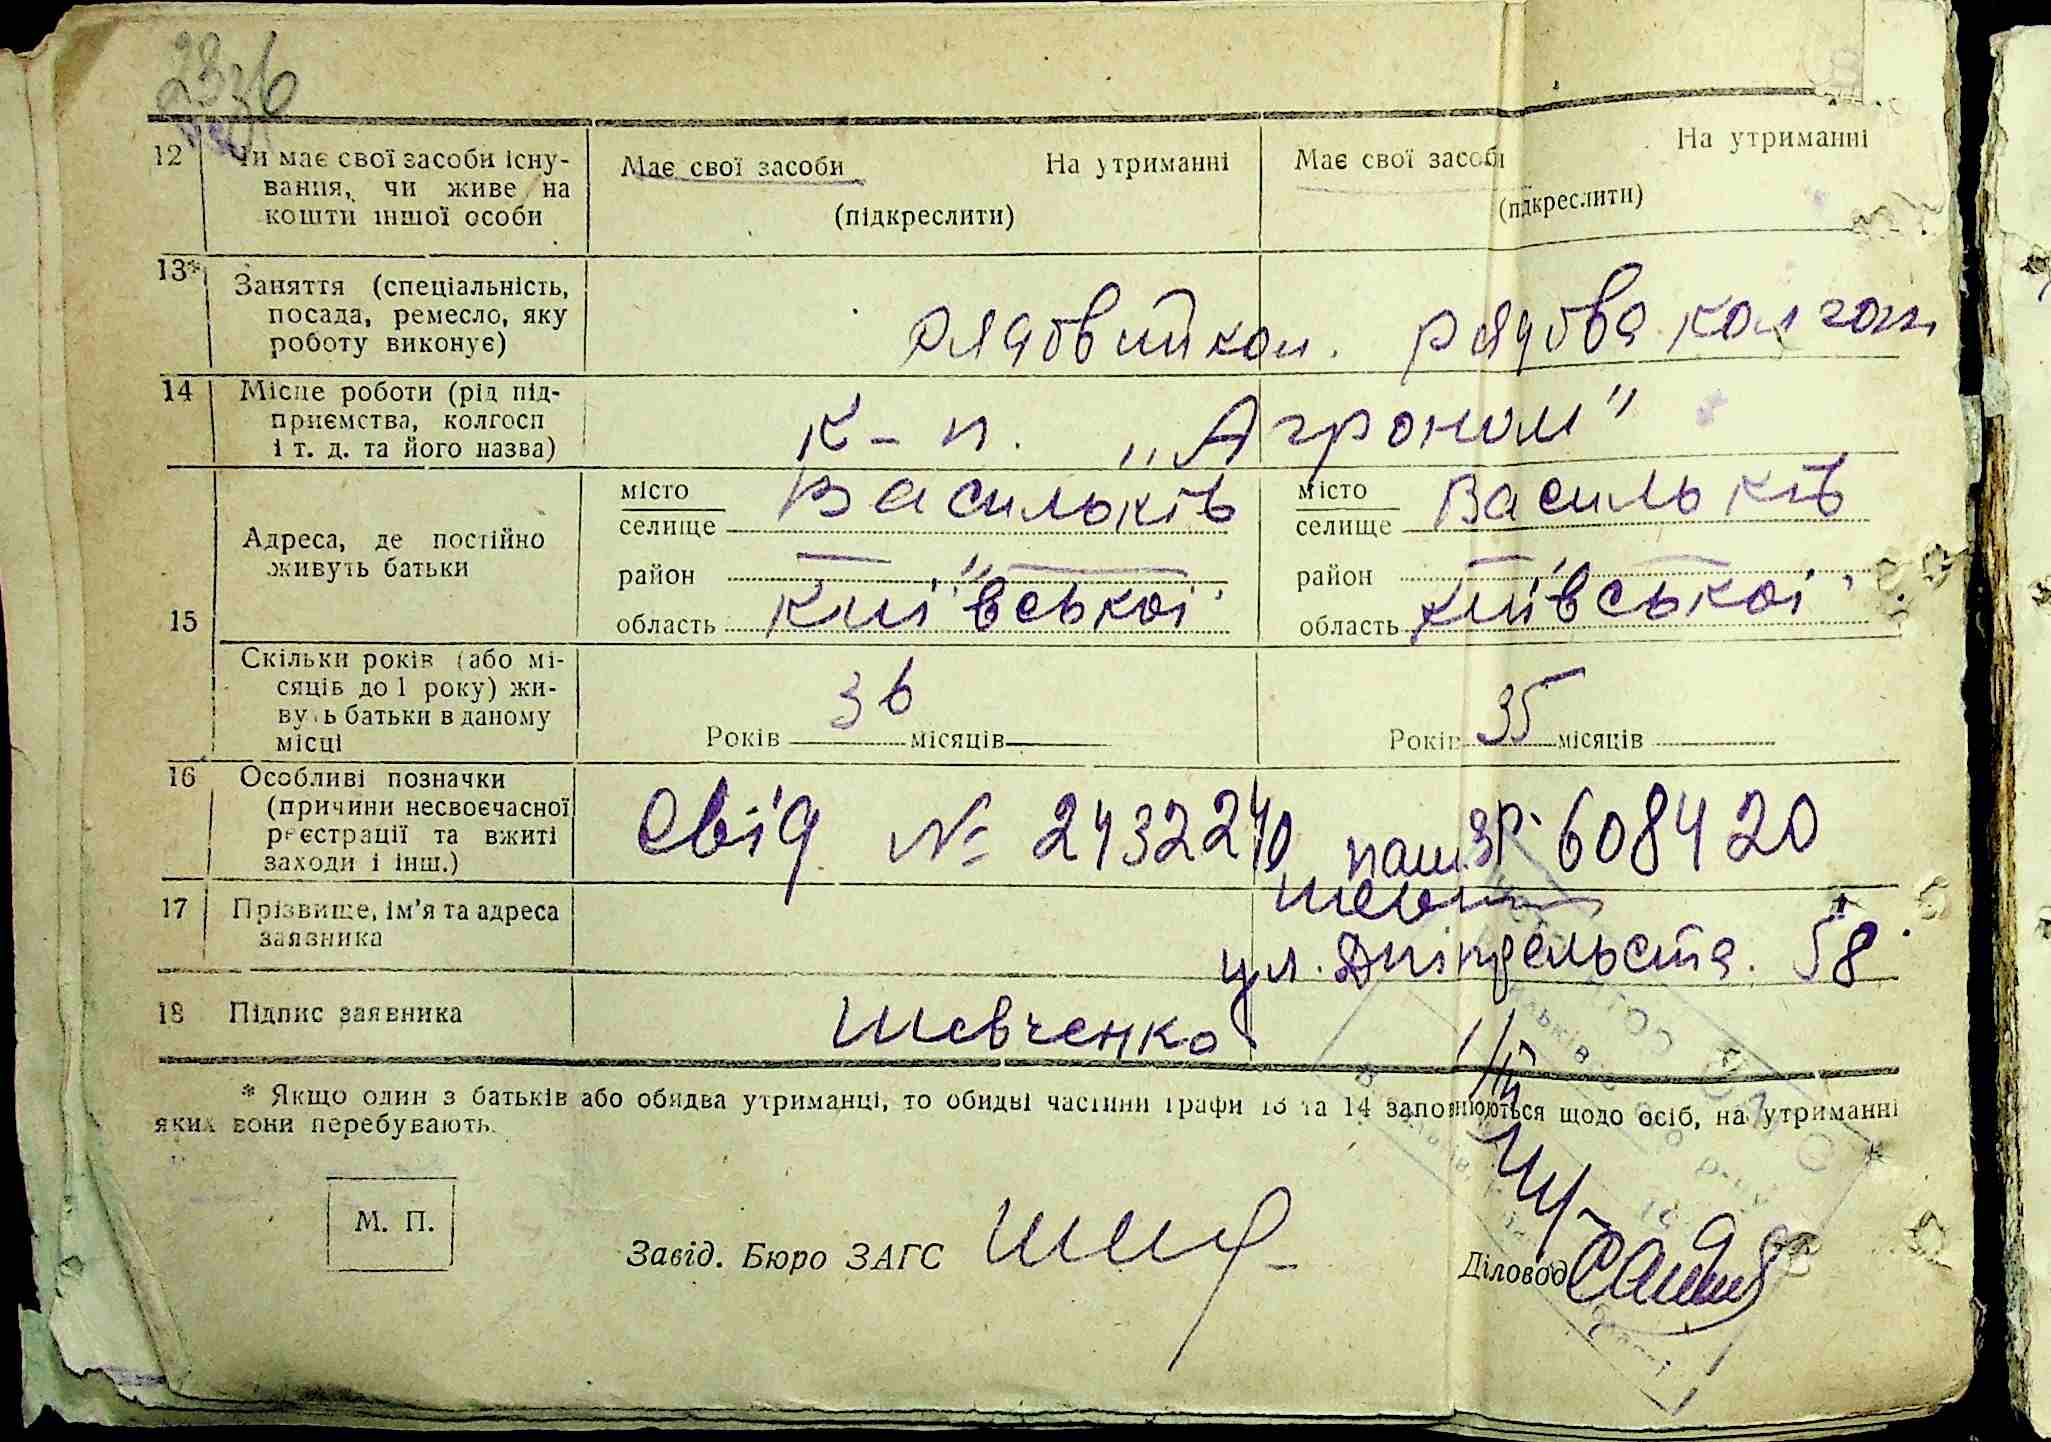 2836
12 Чи має свої засоби існу- Має свої засоби На утриманні Має свої засоби На утриманні
вання, чи живе на
кошти іншої особи (підкреслити) (підкреслити)
13* Заняття (спеціальність,
посада, ремесло, яку
роботу виконує) рядовий кол. рядова колгосп
14 Місце роботи (рід під-
приємства, колгосп
і т. д. та його назва) к-п. „Агроном"
15 Адреса, де постійно
живуть батьки
місто Васильків місто Васильків
селище селище
район — " — район — " —
область Київської область Київської
Скільки років (або мі-
сяців до 1 року) жи-
вуть батьки в даному
місці Років 36 місяців Років 35 місяців
16 Особливі позначки
(причини несвоєчасної
реєстрації та вжиті
заходи і інш.) Свід № 2432240 паш. 608420
17 Прізвище, ім'я та адреса
заявника
ул. 58
18 Підпис заявника Шевченко
* Якщо один з батьків або обидва утриманці, то обидві частини графи 13 та 14 заповнюються щодо осіб, на утриманні
яких вони перебувають.
М. П.
Завід. Бюро ЗАГС Діловод